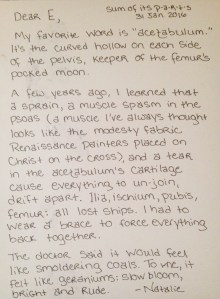 sum of its p-a-r-t-s
Dear E,
31 Jan 2016
My favorite word is "acetabulum."
It's the curved hollow on each side
of the pelvis, keeper of the femur's
pocked moon.
A few years ago, I learned that
a sprain, a muscle spasm in the
psoas (a muscle I've always thought
looks like the modesty fabric
Renaissance painters placed on
Christ on the cross), and a tear
in the acetabulum's cartilage
cause everything to un-join,
drift apart. Ilia, ischium, pubis,
femur: all lost ships. I had to
wear a brace to force everything
back together.
The doctor said it would feel
like smoldering coals. To me, it
felt like geraniums: slow bloom,
bright and rude.
-Natalie.